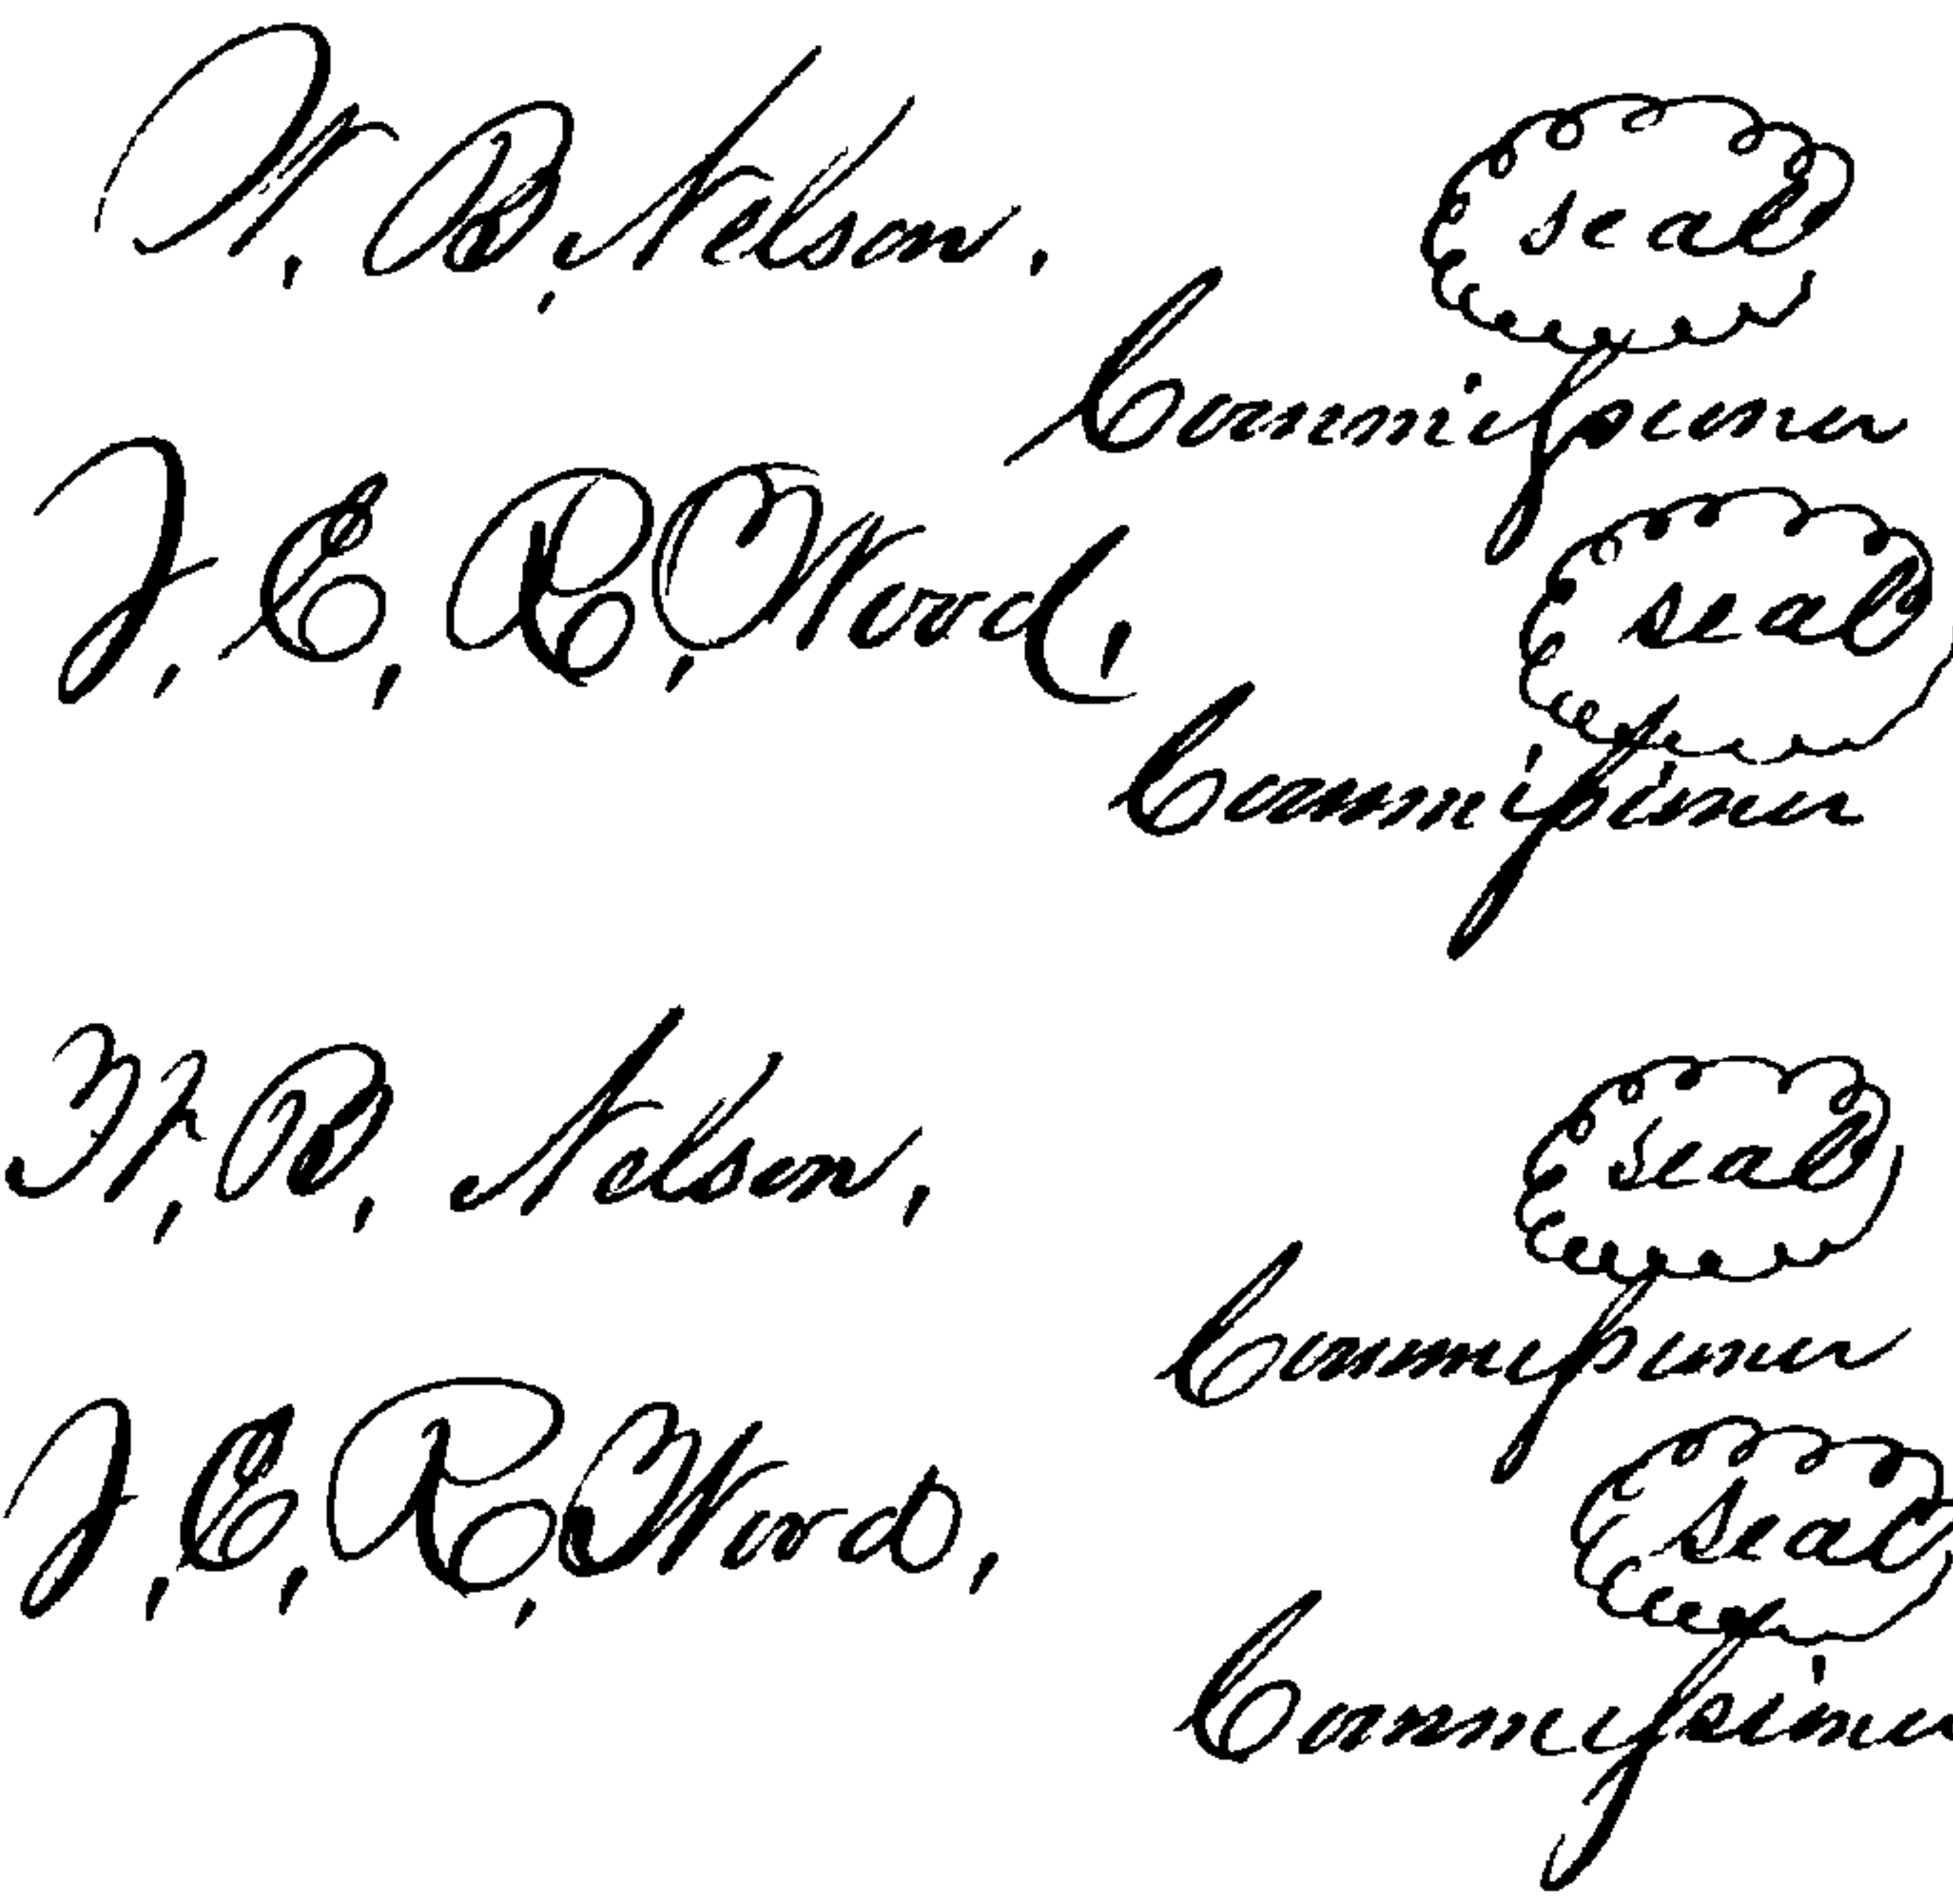 W. R. Nelson. Seal
Commissioner
J. C. R. Word, Seal
Commissioner
W. R. Nelson, Seal
Commissioner
J. C. R. Word, Seal
Commissioner